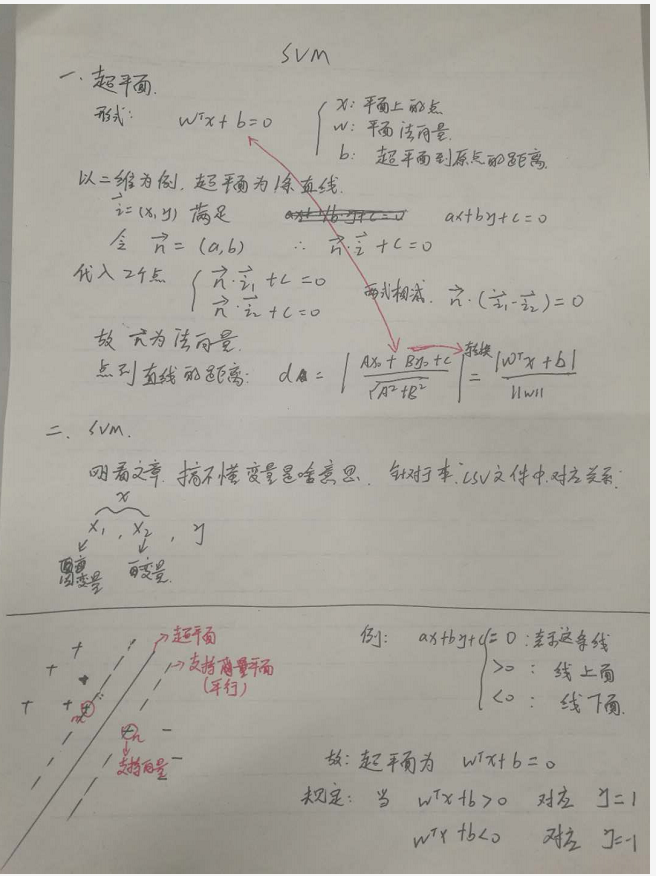 SVM
一. 超平面.
形式: wᵀx + b = 0
x: 平面上的点
w: 平面法向量.
b: 超平面到原点的距离.
以二维为例, 超平面为1条直线.
i⃗ = (x, y) 满足 ax+by+c=0
令 n⃗ = (a, b) ∴ n⃗·i⃗ + c = 0
代入2个点 n⃗·i⃗₁ + c = 0
n⃗·i⃗₂ + c = 0
两式相减. n⃗·(i⃗₁ - i⃗₂) = 0
故 n⃗ 为法向量.
点到直线的距离: d = | (Ax₀ + By₀ + C) / √(A²+B²) | 转换 = |wᵀx + b| / ||w||
二. SVM.
明看文章, 搞不懂变量是啥意思. 针对于本 csv 文件中, 对应关系:
x
x₁, x₂, y
自变量.
超平面
支持向量平面
(平行)
支持向量
例: ax+by+c = 0 : 表示这条线
>0 : 线上面
<0 : 线下面.
故: 超平面为 wᵀx + b = 0
规定: 当 wᵀx + b > 0 对应 y = 1
wᵀx + b < 0 对应 y = -1